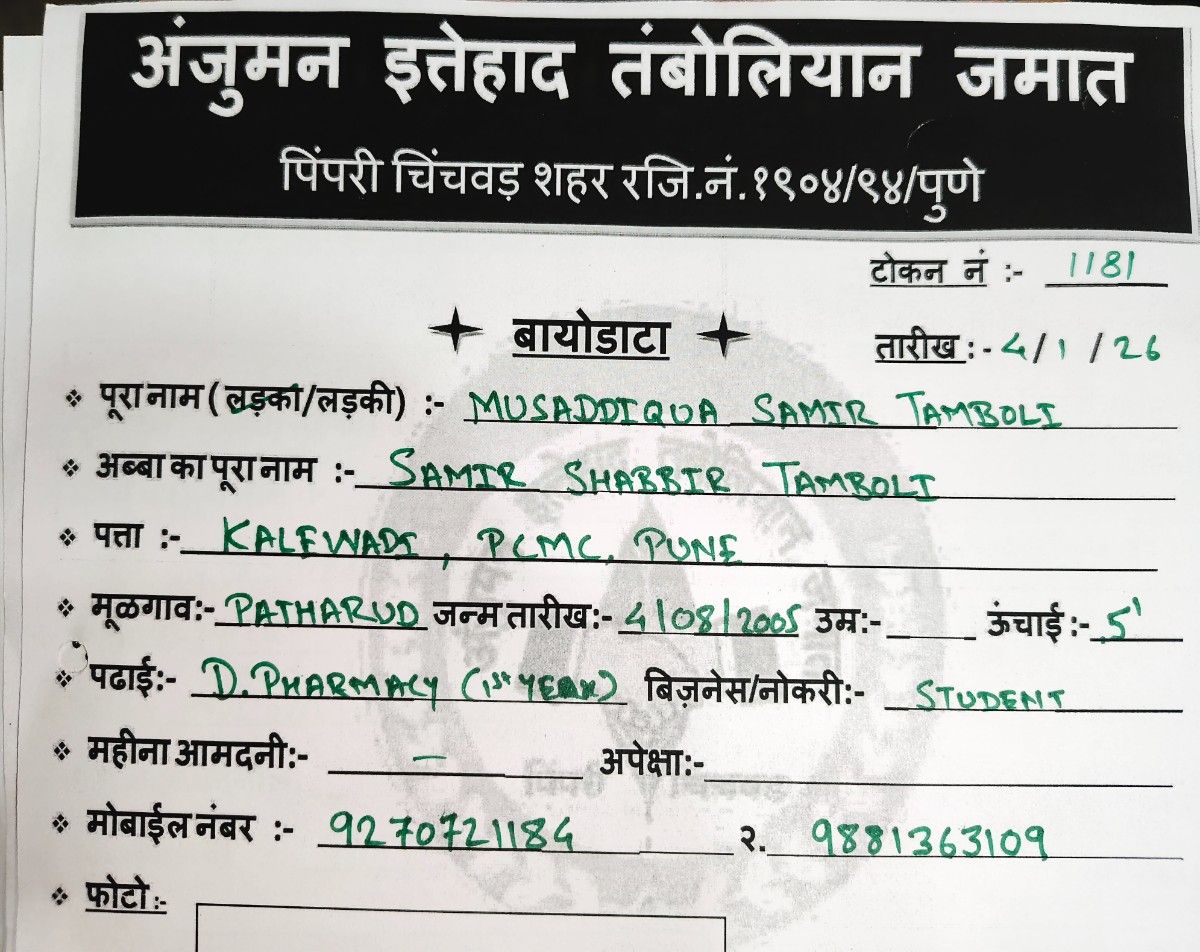 अंजुमन इत्तेहाद तंबोलियान जमात
पिंपरी चिंचवड़ शहर रजि.नं.१९०४/९४/पुणे
टोकन नं :- 1181
बायोडाटा
तारीख :- 4/1/26
पूरा नाम (लड़का/लड़की) :- MUSADDIQUA SAMIR TAMBOLI
अब्बा का पूरा नाम :- SAMIR SHABBIR TAMBOLI
पत्ता :- KALEWADI, PCMC, PUNE
मूळगाव:- PATHARUD जन्म तारीख:- 4/08/2005 उम्र:- ऊंचाई :- 5'
पढाई:- D. PHARMACY (1st YEAR) बिज़नेस/नोकरी:- STUDENT
महीना आमदनी:- – अपेक्षा:-
मोबाईल नंबर :- 9270721184 २. 9881363109
फोटो:-